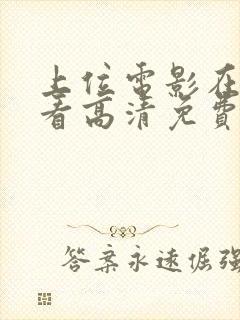 上位電影在
看高清免費
答案永遠倔强